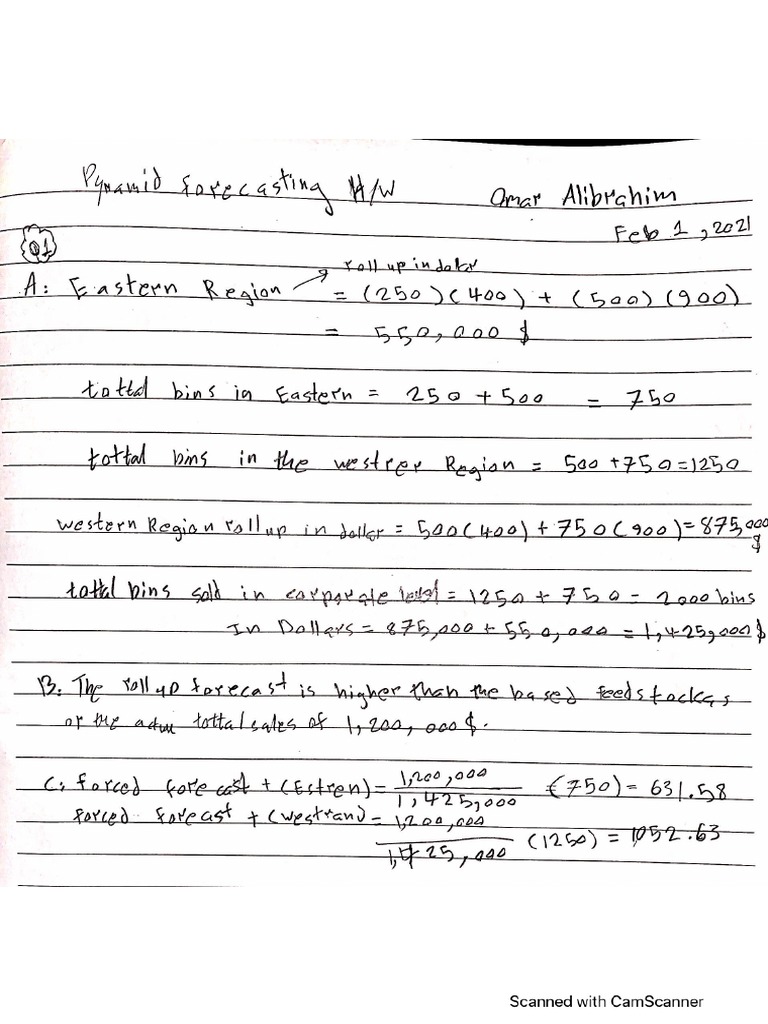 Pyramid forecasting H/W Omar Alibrahim
Feb 1, 2021
Q1
roll up in doler
A: Eastern Region = (250)(400) + (500)(900)
= 550,000 $
tottal bins in Eastern = 250 + 500 = 750
tottal bins in the westrer Region = 500 + 750 = 1250
western Region roll up in doller = 500(400) + 750(900) = 875,000
$
tottal bins sold in corporate level = 1250 + 750 = 2000 bins
In Dollars = 875,000 + 550,000 = 1,425,000 $
B: The roll up forecast is higher than the based feedstockes
or the tottal sales of 1,200,000 $.
C: forced forecast + (Estren) = 1,200,000 / 1,425,000 (750) = 631.58
forced forecast + (westran) = 1,200,000
1,425,000 (1250) = 1052.63
Scanned with CamScanner